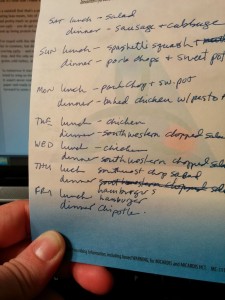 SAT lunch - salad
dinner - sausage + cabbage
SUN lunch - spaghetti squash +
dinner - pork chops + sweet pot
MON lunch - pork chop + sw. pot
dinner - baked chicken w/ pasta +
TUE lunch - chicken
dinner - southwestern chopped sala
WED lunch - chicken
dinner southwestern chopped sala
THU luch southwest chop salad
dinner southwestern chopped
FRI lunch hamburgers
hamburger
dinner Chipotle.